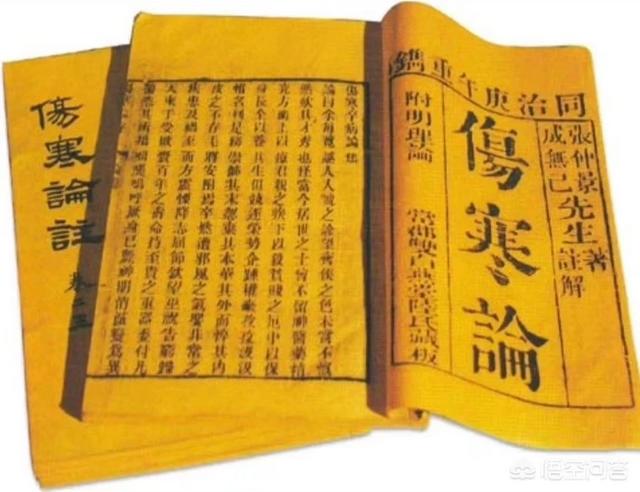 同治庚午重鐫
張仲景著
成無己先生註解
傷寒論
附明理論
常郡雙白燕堂陸氏藏板
傷寒卒病論集
論曰余每覽越人入虢之診望齊侯之色未嘗不慨
然歎其才秀也怪當今居世之士曾不留神醫藥精
究方術上以療君親之疾下以救貧賤之厄中以保
身長全以養其生但競逐榮勢企踵權豪孜孜汲汲
惟名利是務崇飾其末忽棄其本華其外而悴其內
皮之不存毛將安附焉卒然遭邪風之氣嬰非常之
疾患及禍至而方震慄降志屈節欽望巫祝告窮歸
天束手受敗賫百年之壽命持至貴之重器委付凡
醫恣其所措咄嗟嗚呼厥身已斃神明消滅變為異
傷寒論註
卷二三
悟空问答